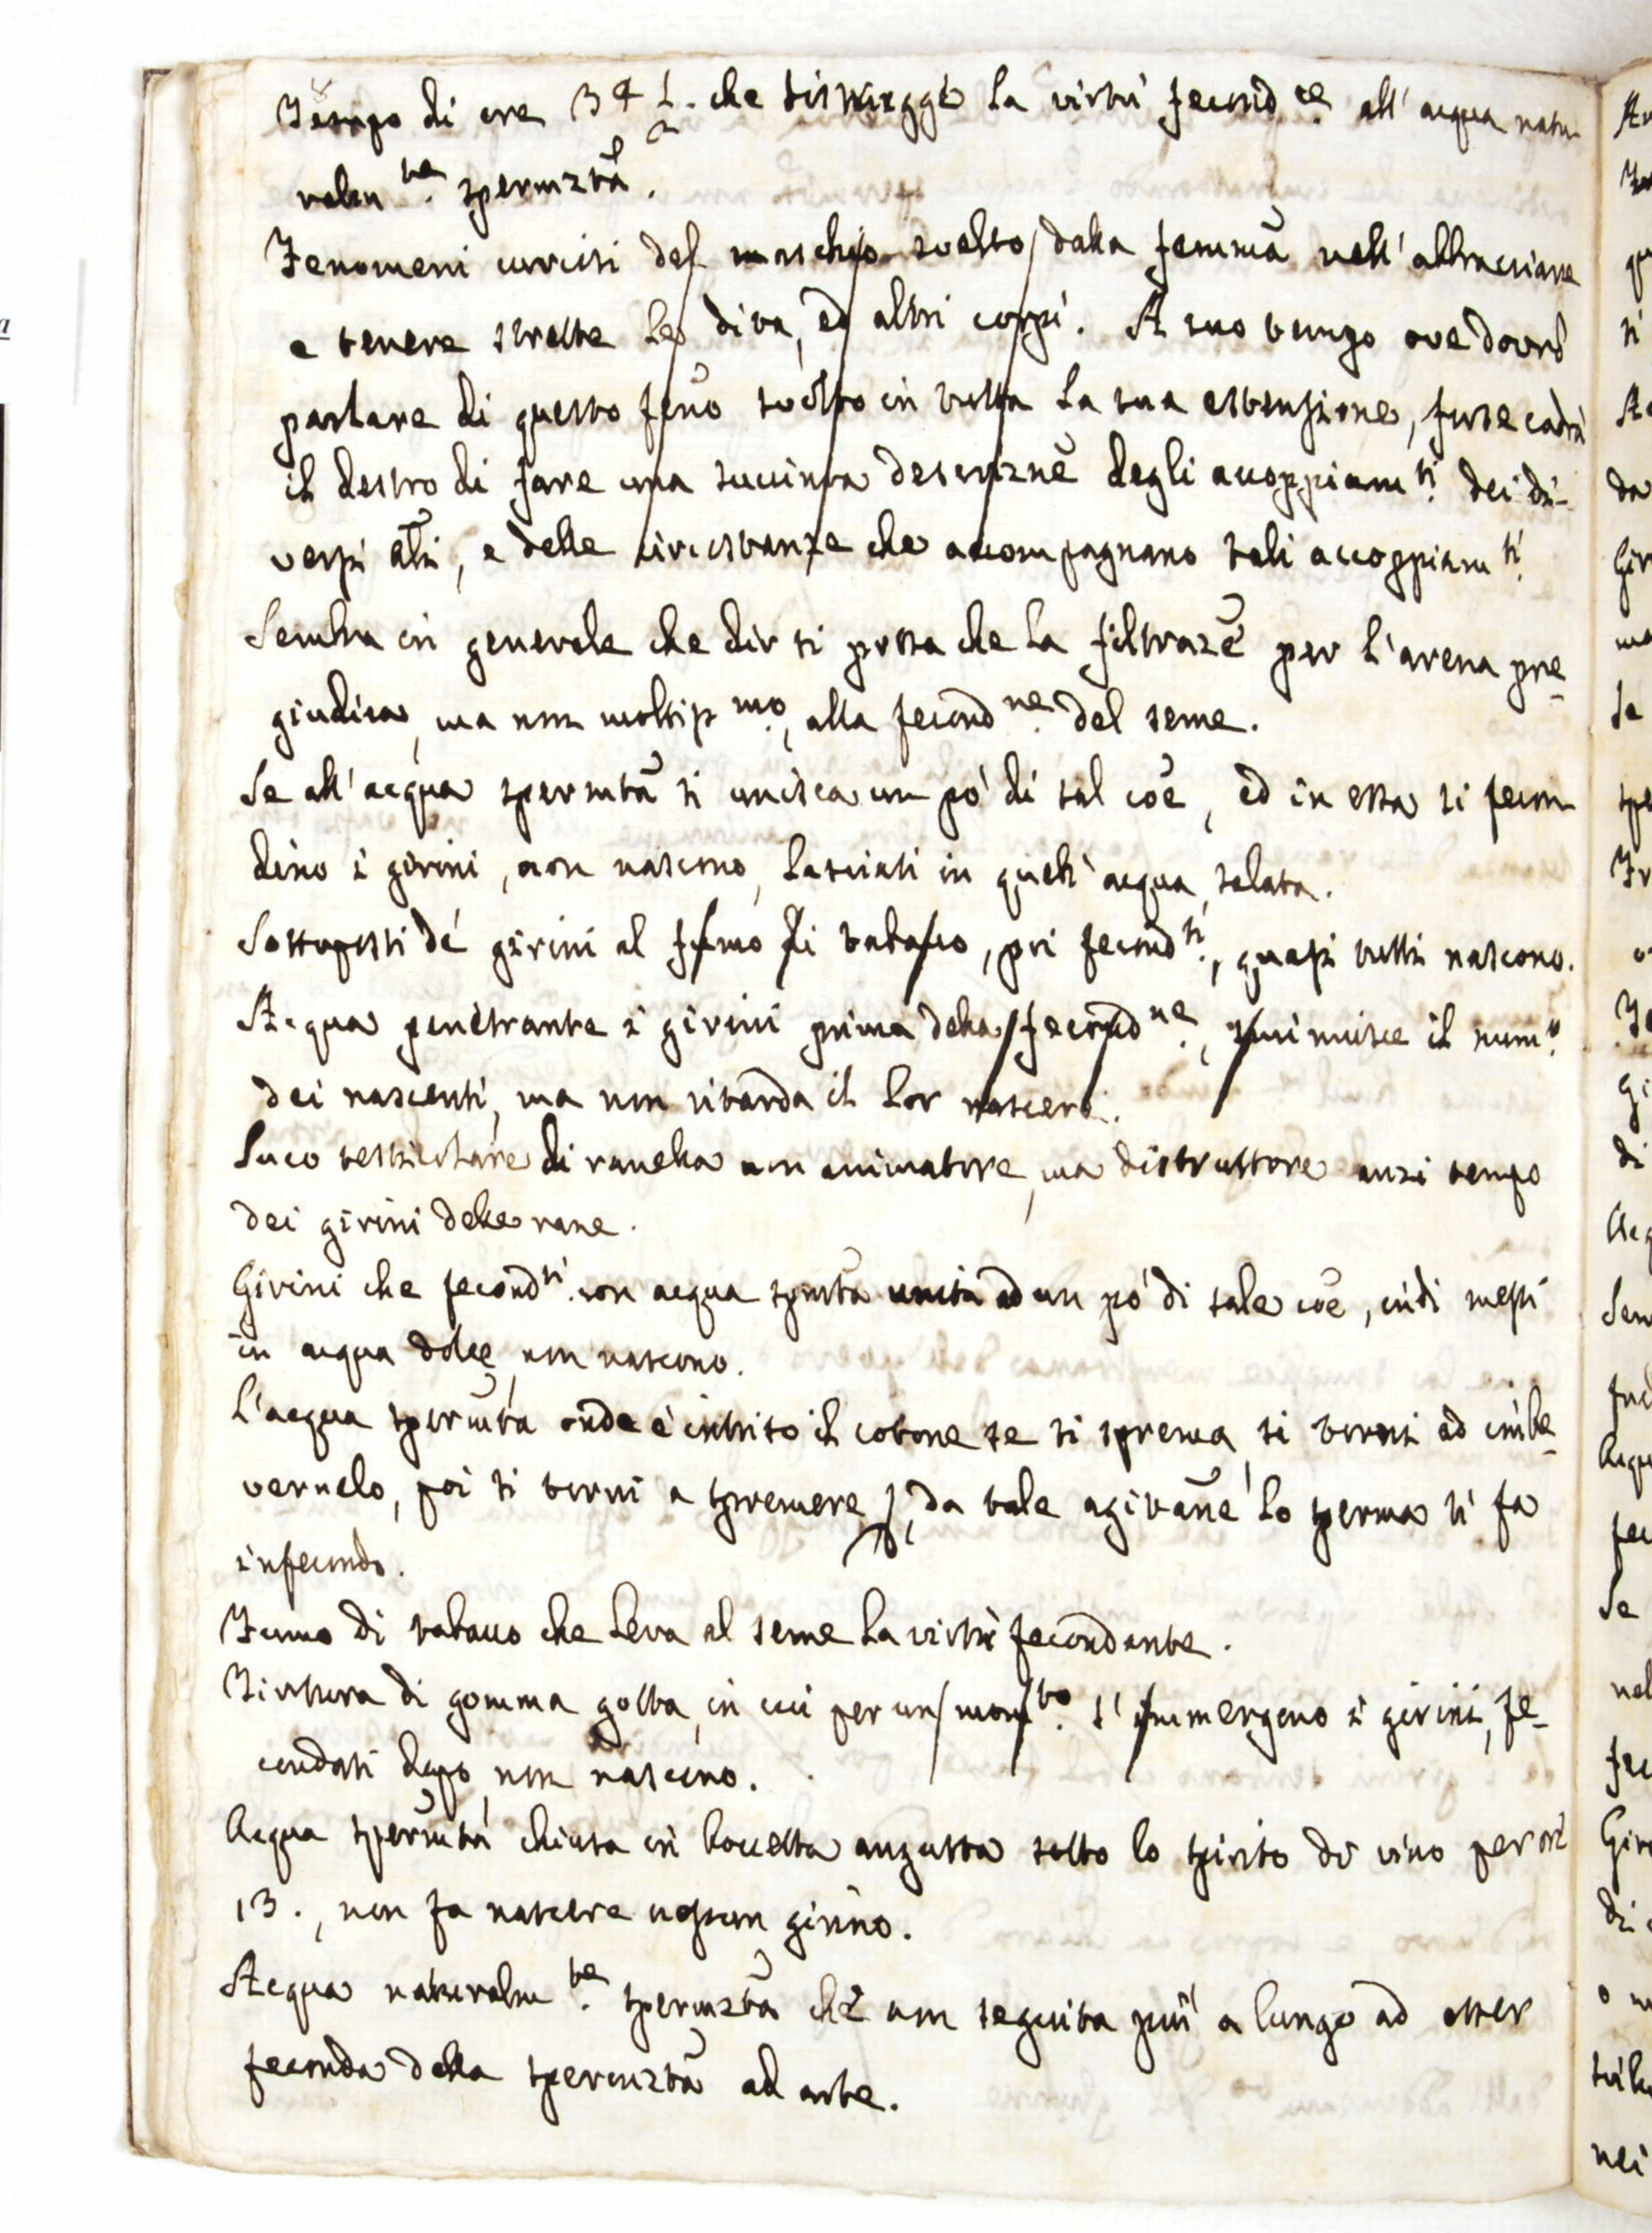 Tempo di ore 34 1/2 che distrugge la virtù fecond.ce all' acqua natu
ralm.te spermzta.
Fenomeni curiosi del maschio svelto dalla femina nell' abbracciare
e tenere strette le dita, ed altri corpi. A suo luogo ove dovrò
parlare di questo feno svolto in tutta la sua estensione, forse cadrà
il destro di fare una succinta descrizne degli accoppiam.ti dei di-
versi ali, e delle circostanze che accompagnano tali accoppiam.ti
Sembra in generale che dir si possa che la filtraze per l'arena pre-
giudica, ma non moltiss.mo, alla fecond.ne del seme.
Se all' acqua spermta si unisca un pò di sal coe, ed in essa si fecon
dino i girini, non nascono, lasciati in quell' acqua salata.
Sottoposti dei girini al fumo di tabacco, poi fecond.ti, quasi tutti nascono.
Acqua penetrante i girini prima della fecond.ne, diminuisce il num.o
dei nascenti, ma non ritarda il lor nascere.
Suco testicolare di ranella non animatore, ma distruttore anzi tempo
dei girini delle rane.
Girini che fecond.ti con acqua spmta unita ad un pò di sale coe, indi messi
in acqua dolce non nascono.
L'acqua spermta onde è intriso il cotone se si sprema, si torni ad imbe-
vernelo, poi si torni a spremere, da tale agitane lo sperma si fa
infecondo.
Fumo di tabacco che leva al seme la virtù fecondante.
Tintura di gomma gotta, in cui per un mom.to s' immergono i girini, fe-
condati dopo, non nascono.
Acqua spermta chiusa in boccetta angusta sotto lo spirito di vino per ore
13., non fa nascere nessun girino.
Acqua naturalm.te spermzta che non seguita più a lungo ad esser
feconda della spermzta ad arte.